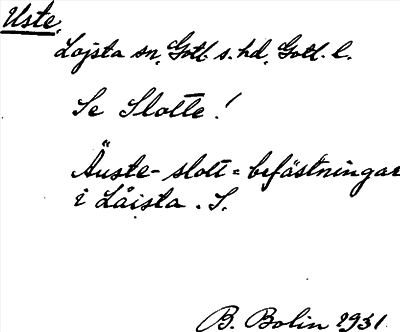 Uste.
Lojsta sn, Gotl. s. hd, Gotl. l.
Se Slotte!
Äuste-slott = befästningar
i Låista. S.
B. Bolin 1931